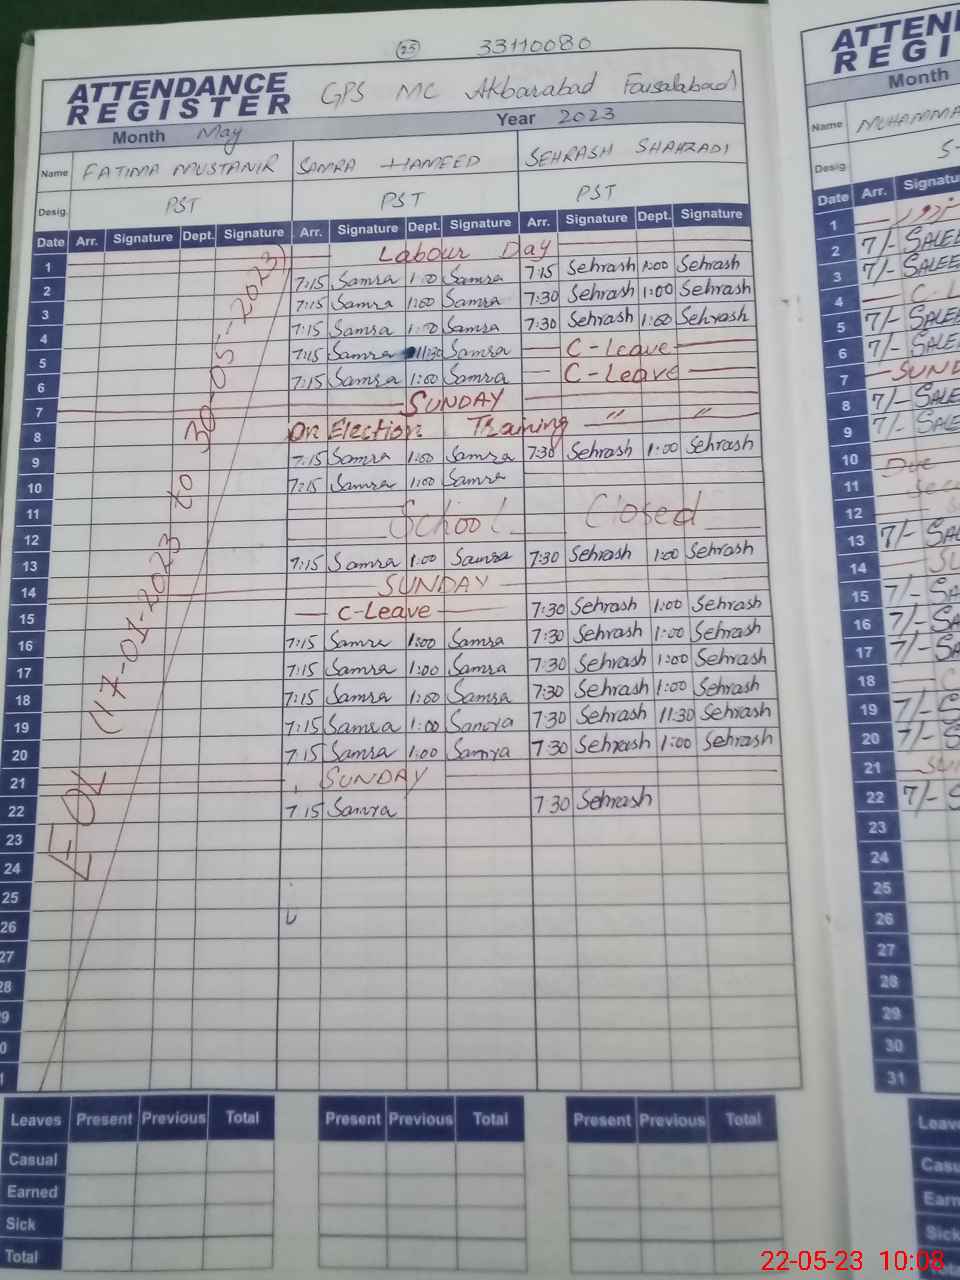 25 33110080
ATTENDANCE REGISTER GPS MC Akbarabad Faisalabad
Month May Year 2023
Name FATIMA MUSTANIR SAMRA HAMEED SEHRASH SHAHZADI
Desig. PST PST PST
Date Arr. Signature Dept. Signature Arr. Signature Dept. Signature Arr. Signature Dept. Signature
EOL (17-01-2023 to 30-05-2023)
1 Labour Day
2 7:15 Samra 1:00 Samra 7:15 Sehrash 1:00 Sehrash
3 7:15 Samra 1:00 Samra 7:30 Sehrash 1:00 Sehrash
4 7:15 Samra 1:00 Samra 7:30 Sehrash 1:00 Sehrash
5 7:15 Samra 11:30 Samra C-Leave
6 7:15 Samra 1:00 Samra C-Leave
7 SUNDAY
8 On Election Training " "
9 7:15 Samra 1:00 Samra 7:30 Sehrash 1:00 Sehrash
10 7:15 Samra 1:00 Samra
11 School Closed
12
13 7:15 Samra 1:00 Samra 7:30 Sehrash 1:00 Sehrash
14 SUNDAY
15 C-Leave 7:30 Sehrash 1:00 Sehrash
16 7:15 Samra 1:00 Samra 7:30 Sehrash 1:00 Sehrash
17 7:15 Samra 1:00 Samra 7:30 Sehrash 1:00 Sehrash
18 7:15 Samra 1:00 Samra 7:30 Sehrash 1:00 Sehrash
19 7:15 Samra 1:00 Samra 7:30 Sehrash 11:30 Sehrash
20 7:15 Samra 1:00 Samra 7:30 Sehrash 1:00 Sehrash
21 SUNDAY
22 7:15 Samra 7:30 Sehrash
23
24
25
26
27
28
29
30
31
Leaves Present Previous Total Present Previous Total Present Previous Total
Casual
Earned
Sick
Total
Month
Name
Desig.
Date Arr.
1
2 7/-
3 7/-
4
5 7/-
6 7/-
7
8 7/-
9 7/-
10 Due
11
12
13 7/-
14
15 7/-
16 7/-
17 7/-
18
19 7/-
20 7/-
21
22 7/-
23
24
25
26
27
28
29
30
31
22-05-23 10:08